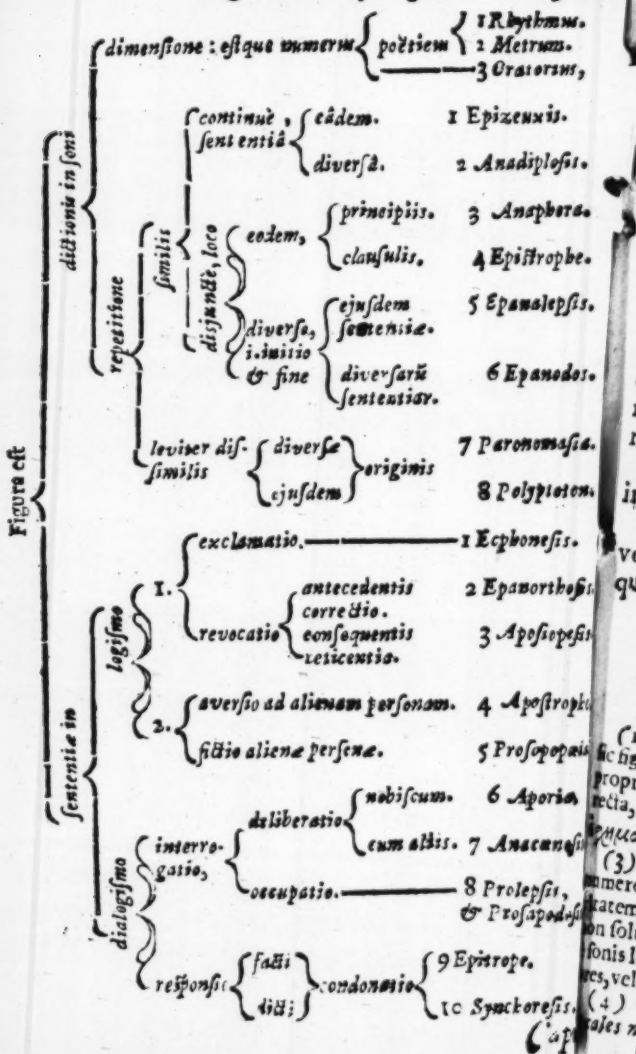 Figura est
dictionis in soni
dimensione : estque numerus
poëticus
1 Rhythmus.
2 Metrum.
3 Oratorius,
repetitione
similis
continuè,
sententiâ
eâdem. 1 Epizeuxis.
diversâ. 2 Anadiplosis.
disjunctè, loco
eodem,
principiis. 3 Anaphora.
clausulis. 4 Epistrophe.
diverso,
i. initio
& fine
ejusdem
sententiæ.
5 Epanalepsis.
diversarũ
sententiar.
6 Epanodos.
leviter dis-
similis
diversæ
ejusdem
originis
7 Paronomasia.
8 Polyptoton.
sententiæ in
logismo
1.
exclamatio. 1 Ecphonesis.
revocatio
antecedentis
correctio.
2 Epanorthosis
consequentis
reticentia.
3 Aposiopesis
2.
aversio ad alienam personam. 4 Apostrophe
fictio alienæ personæ. 5 Prosopopœia
dialogismo
interro-
gatio,
deliberatio
nobiscum. 6 Aporia,
cum aliis. 7 Anacœnosis
occupatio. 8 Prolepsis,
& Prosapodosis
responsio
facti
dicti
condonatio
9 Epitrope.
10 Synchoresis.
(3)
(4)